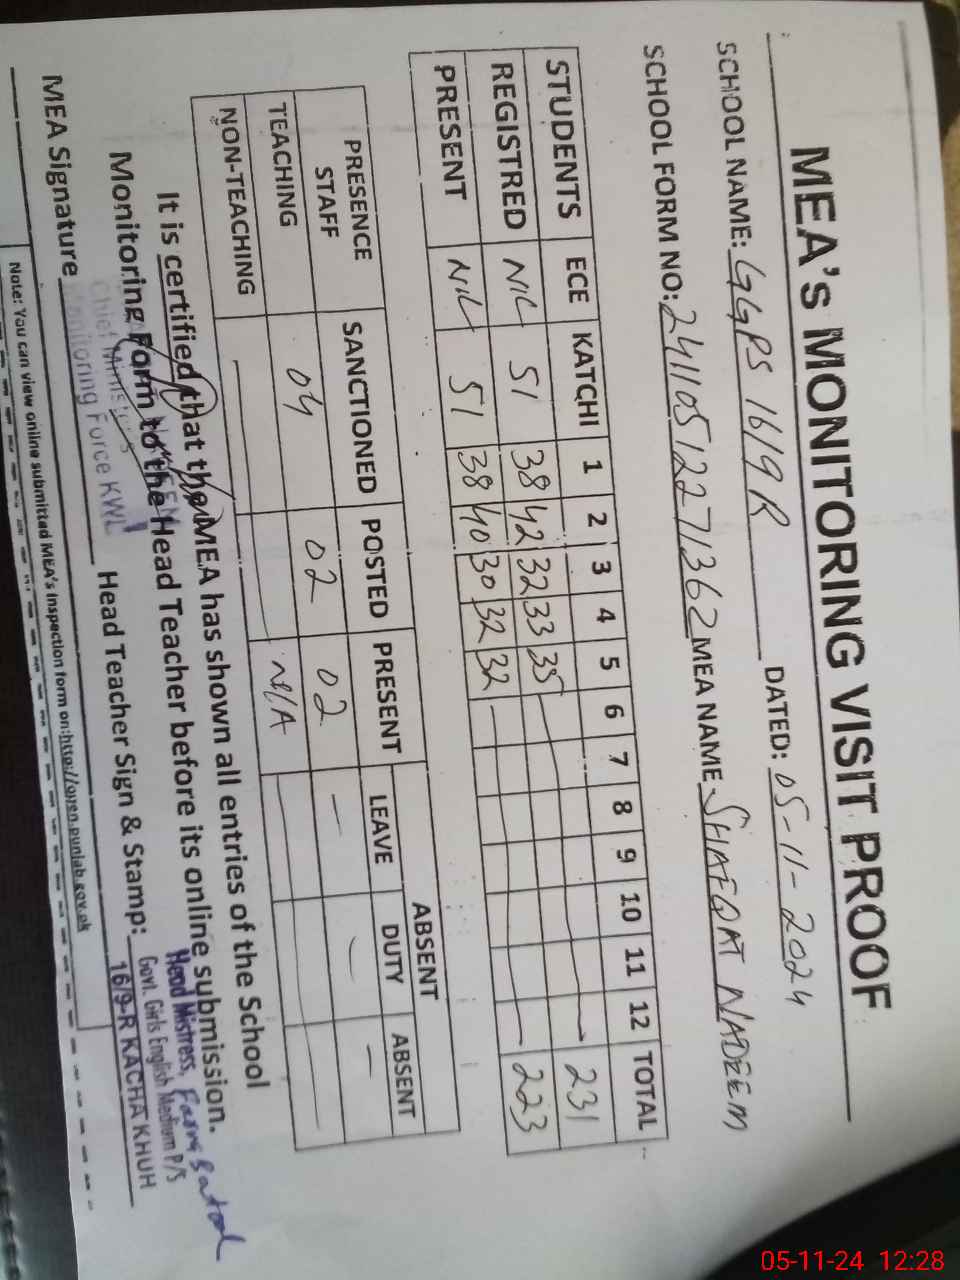 MEA'S MONITORING VISIT PROOF
SCHOOL NAME: GGPS 16/9 R DATED: 05-11-2024
SCHOOL FORM NO: 24110512271362 MEA NAME SHAFQAT NADEEM
STUDENTS ECE KATCHI 1 2 3 4 5 6 7 8 9 10 11 12 TOTAL
REGISTRED NIL 51 38 42 32 33 35 231
PRESENT NIL 51 38 40 30 32 32 223
PRESENCE STAFF SANCTIONED POSTED PRESENT ABSENT
LEAVE DUTY ABSENT
TEACHING 04 02 02 – – –
NON-TEACHING N/A
It is certified that the MEA has shown all entries of the School
Monitoring Form to the Head Teacher before its online submission.
MEA Signature Head Teacher Sign & Stamp:
Chief Minister's
Monitoring Force KWL
Head Mistress,
Govt. Girls English Medium P/S
16/9-R KACHA KHUH
Note: You can view online submitted MEA's inspection form on:http://open.punjab.gov.pk
05-11-24 12:28